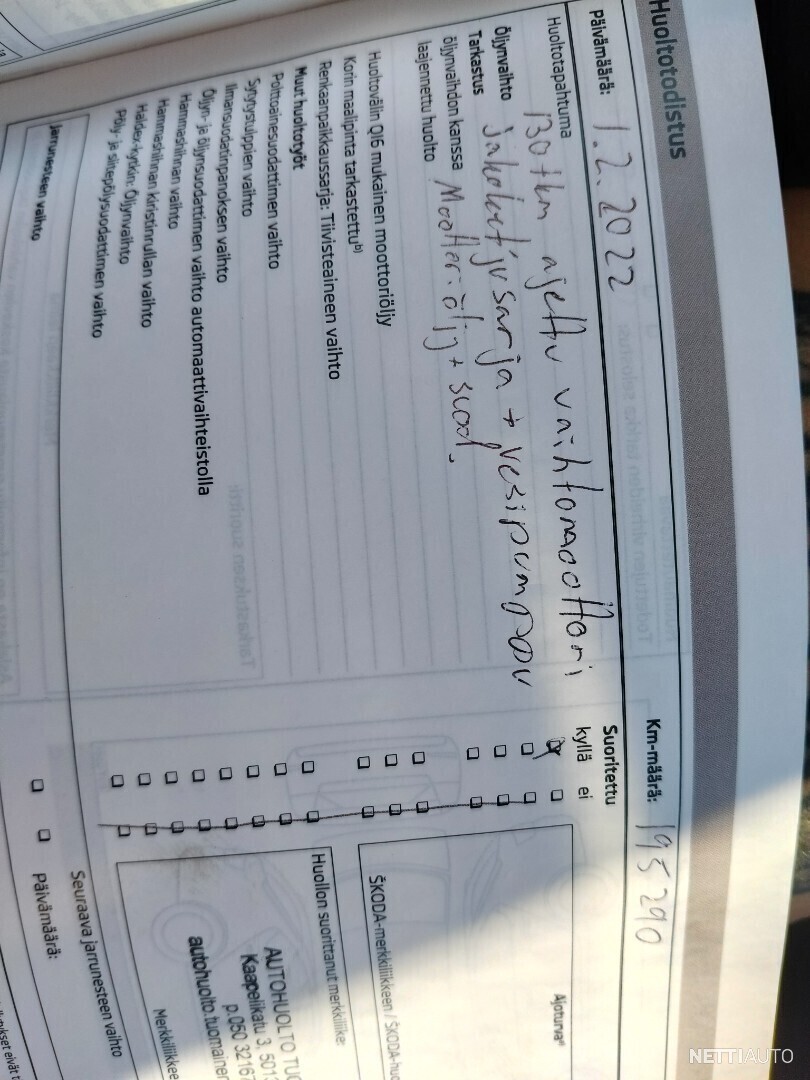 Huoltotodistus
Päivämäärä: 1.2.2022
Km-määrä: 195 290
Huoltotapahtuma
Suoritettu
kyllä ei
130 tkm ajettu vaihtomoottori
Öljynvaihto
jakohihnasarja + vesipumppu
Tarkastus
öljynvaihdon kanssa
laajennettu huolto
Moottoriöljy + suod.
Huoltovälin QI6 mukainen moottoriöljy
Korin maalipinta tarkastettu b)
Renkaanpaikkaussarja: Tiivisteaineen vaihto
Muut huoltotyöt
Polttoainesuodattimen vaihto
Sytytystulppien vaihto
Ilmansuodatinpanoksen vaihto
Öljyn- ja öljynsuodattimen vaihto automaattivaihteistolla
Hammashihnan vaihto
Hammashihnan kiristinrullan vaihto
Haldex-kytkin: Öljynvaihto
Pöly- ja siitepölysuodattimen vaihto
Jarrunesteen vaihto
Ajoturva
ŠKODA-merkkiliikkeen / ŠKODA-huo
Huollon suorittanut merkkiliike:
AUTOHUOLTO TUO
Kaapelikatu 3, 5013
p.050 32167
autohuolto.tuomainen
Merkkiliikkee
Seuraava jarrunesteen vaihto
Päivämäärä:
NETTIAUTO